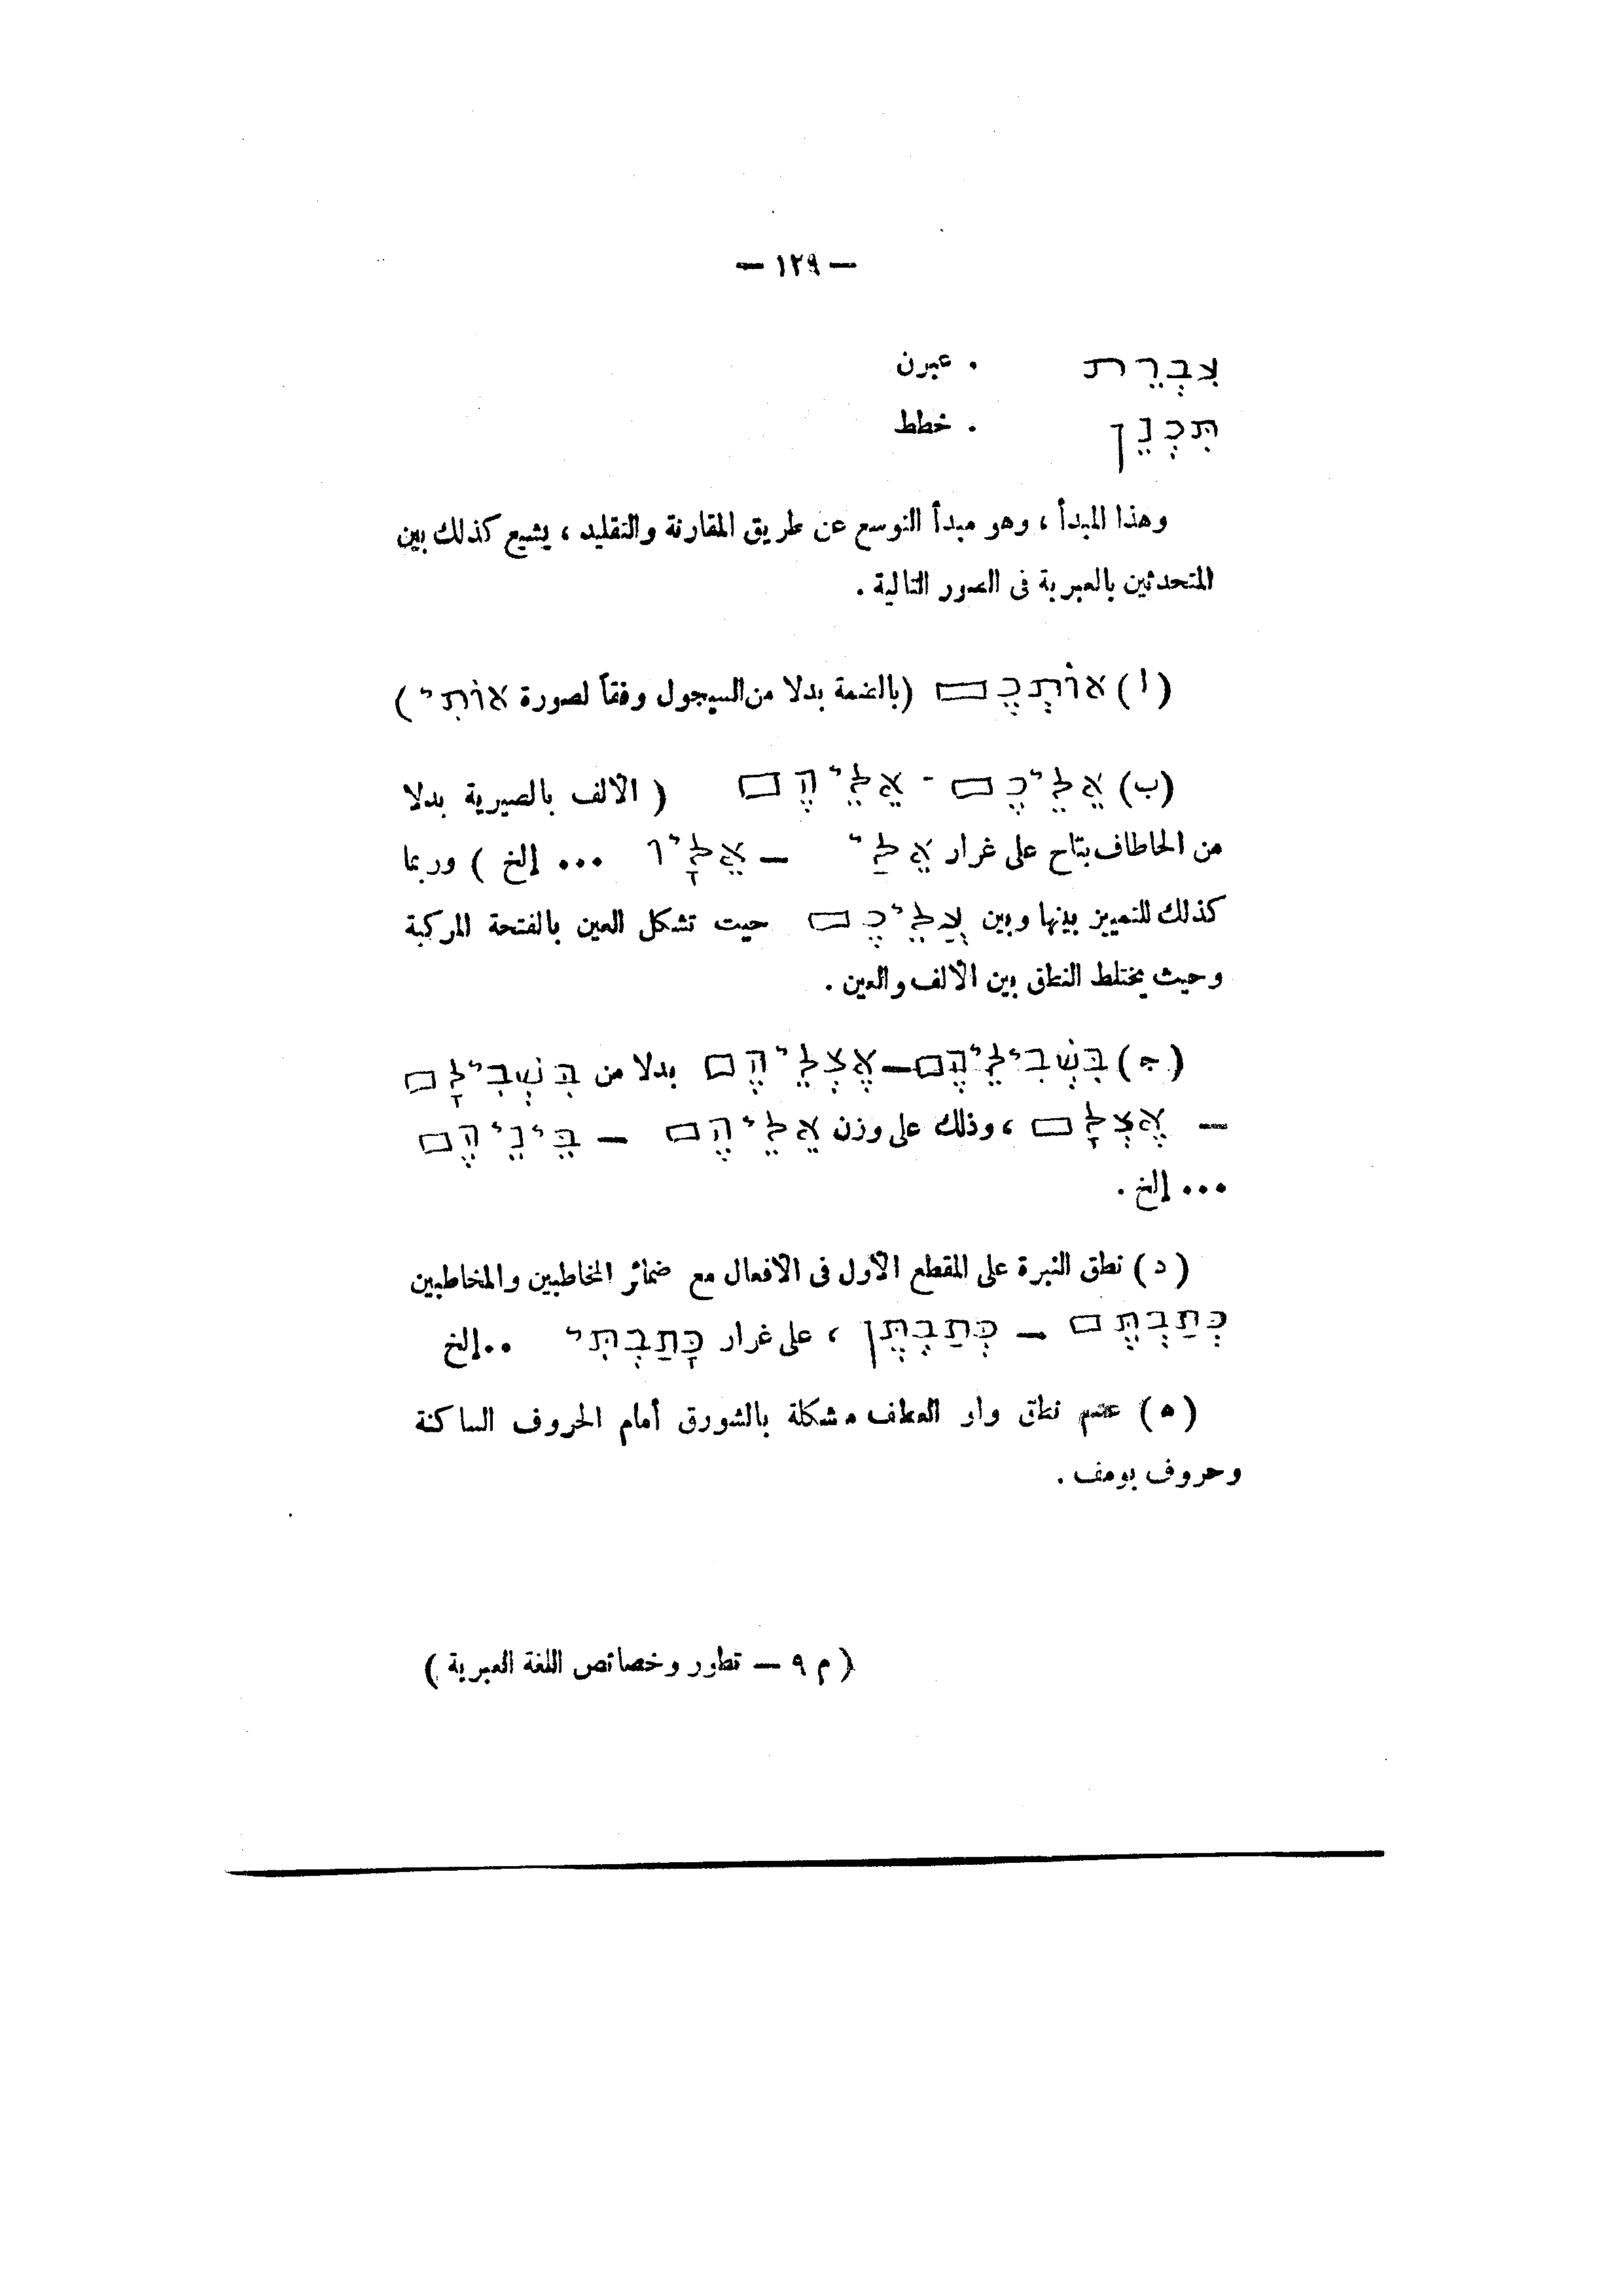 — ١٢٩ —
עִבְרֵת . عبرن
תִּכְנֵן . خطط
وهذا المبدأ ، وهو مبدأ التوسع عن طريق المقارنة والتقليد ، يشيع كذلك بين
المتحدثين بالعبرية فى الصور التالية .
(ا) אוֹתְכֶם (بالضمة بدلا من السيجول وفقاً لصورة אוֹתִי)
(ب) אֵלֵיכֶם - אֵלֵיהֶם ( الألف بالصيرية بدلا
من الحاطاف بتّاح على غرار אֵלַי — אֵלָיו ... إلخ ) وربما
كذلك للتمييز بينها وبين עֲלֵיכֶם حيت تشكل العين بالفتحة المركبة
وحيث يختلط النطق بين الألف والعين .
(ج) בִּשְׁבִילֵיהֶם — אֶצְלֵיהֶם بدلا من בִּשְׁבִילָם
— אֶצְלָם ، وذلك على وزن אֵלֵיהֶם — בֵּינֵיהֶם
... إلخ .
(د) نطق النبرة على المقطع الأول فى الافعال مع ضمائر المخاطبين والمخاطبين
כְּתַבְתֶּם — כְּתַבְתֶּן ، على غرار כָּתַבְתִּי ..إلخ
(ه) نطق واو العطف مشكلة بالشورق أمام الحروف الساكنة
وحروف بومف .
( م ٩ — تطور وخصائص اللغة العبرية )